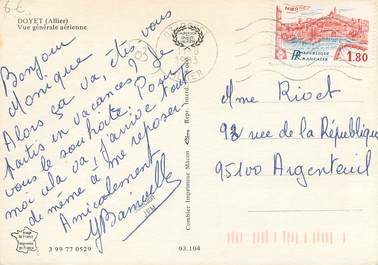 6 €
DOYET (Allier)
Vue générale aérienne
Bonjour
Monique
Alors ça va, êtes vous
partis en vacances? Je
vous le souhaite. Pour
moi cela va j'arrive tout
de même à me reposer.
Amicalement
3 99 77 0529
03.104
Combier Imprimeur Mâcon
REPUBLIQUE
FRANCAISE
1.80
Mme Riot
92 rue de la République
95100 Argenteuil